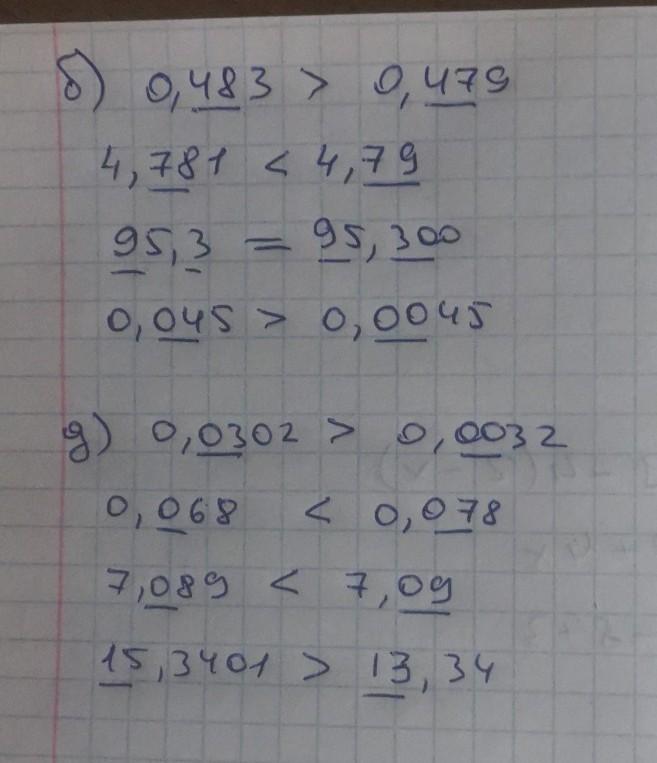 б) 0,483 > 0,479
4,781 < 4,79
95,3 = 95,300
0,045 > 0,0045
д) 0,0302 > 0,0032
0,068 < 0,078
7,089 < 7,09
15,3401 > 13,34